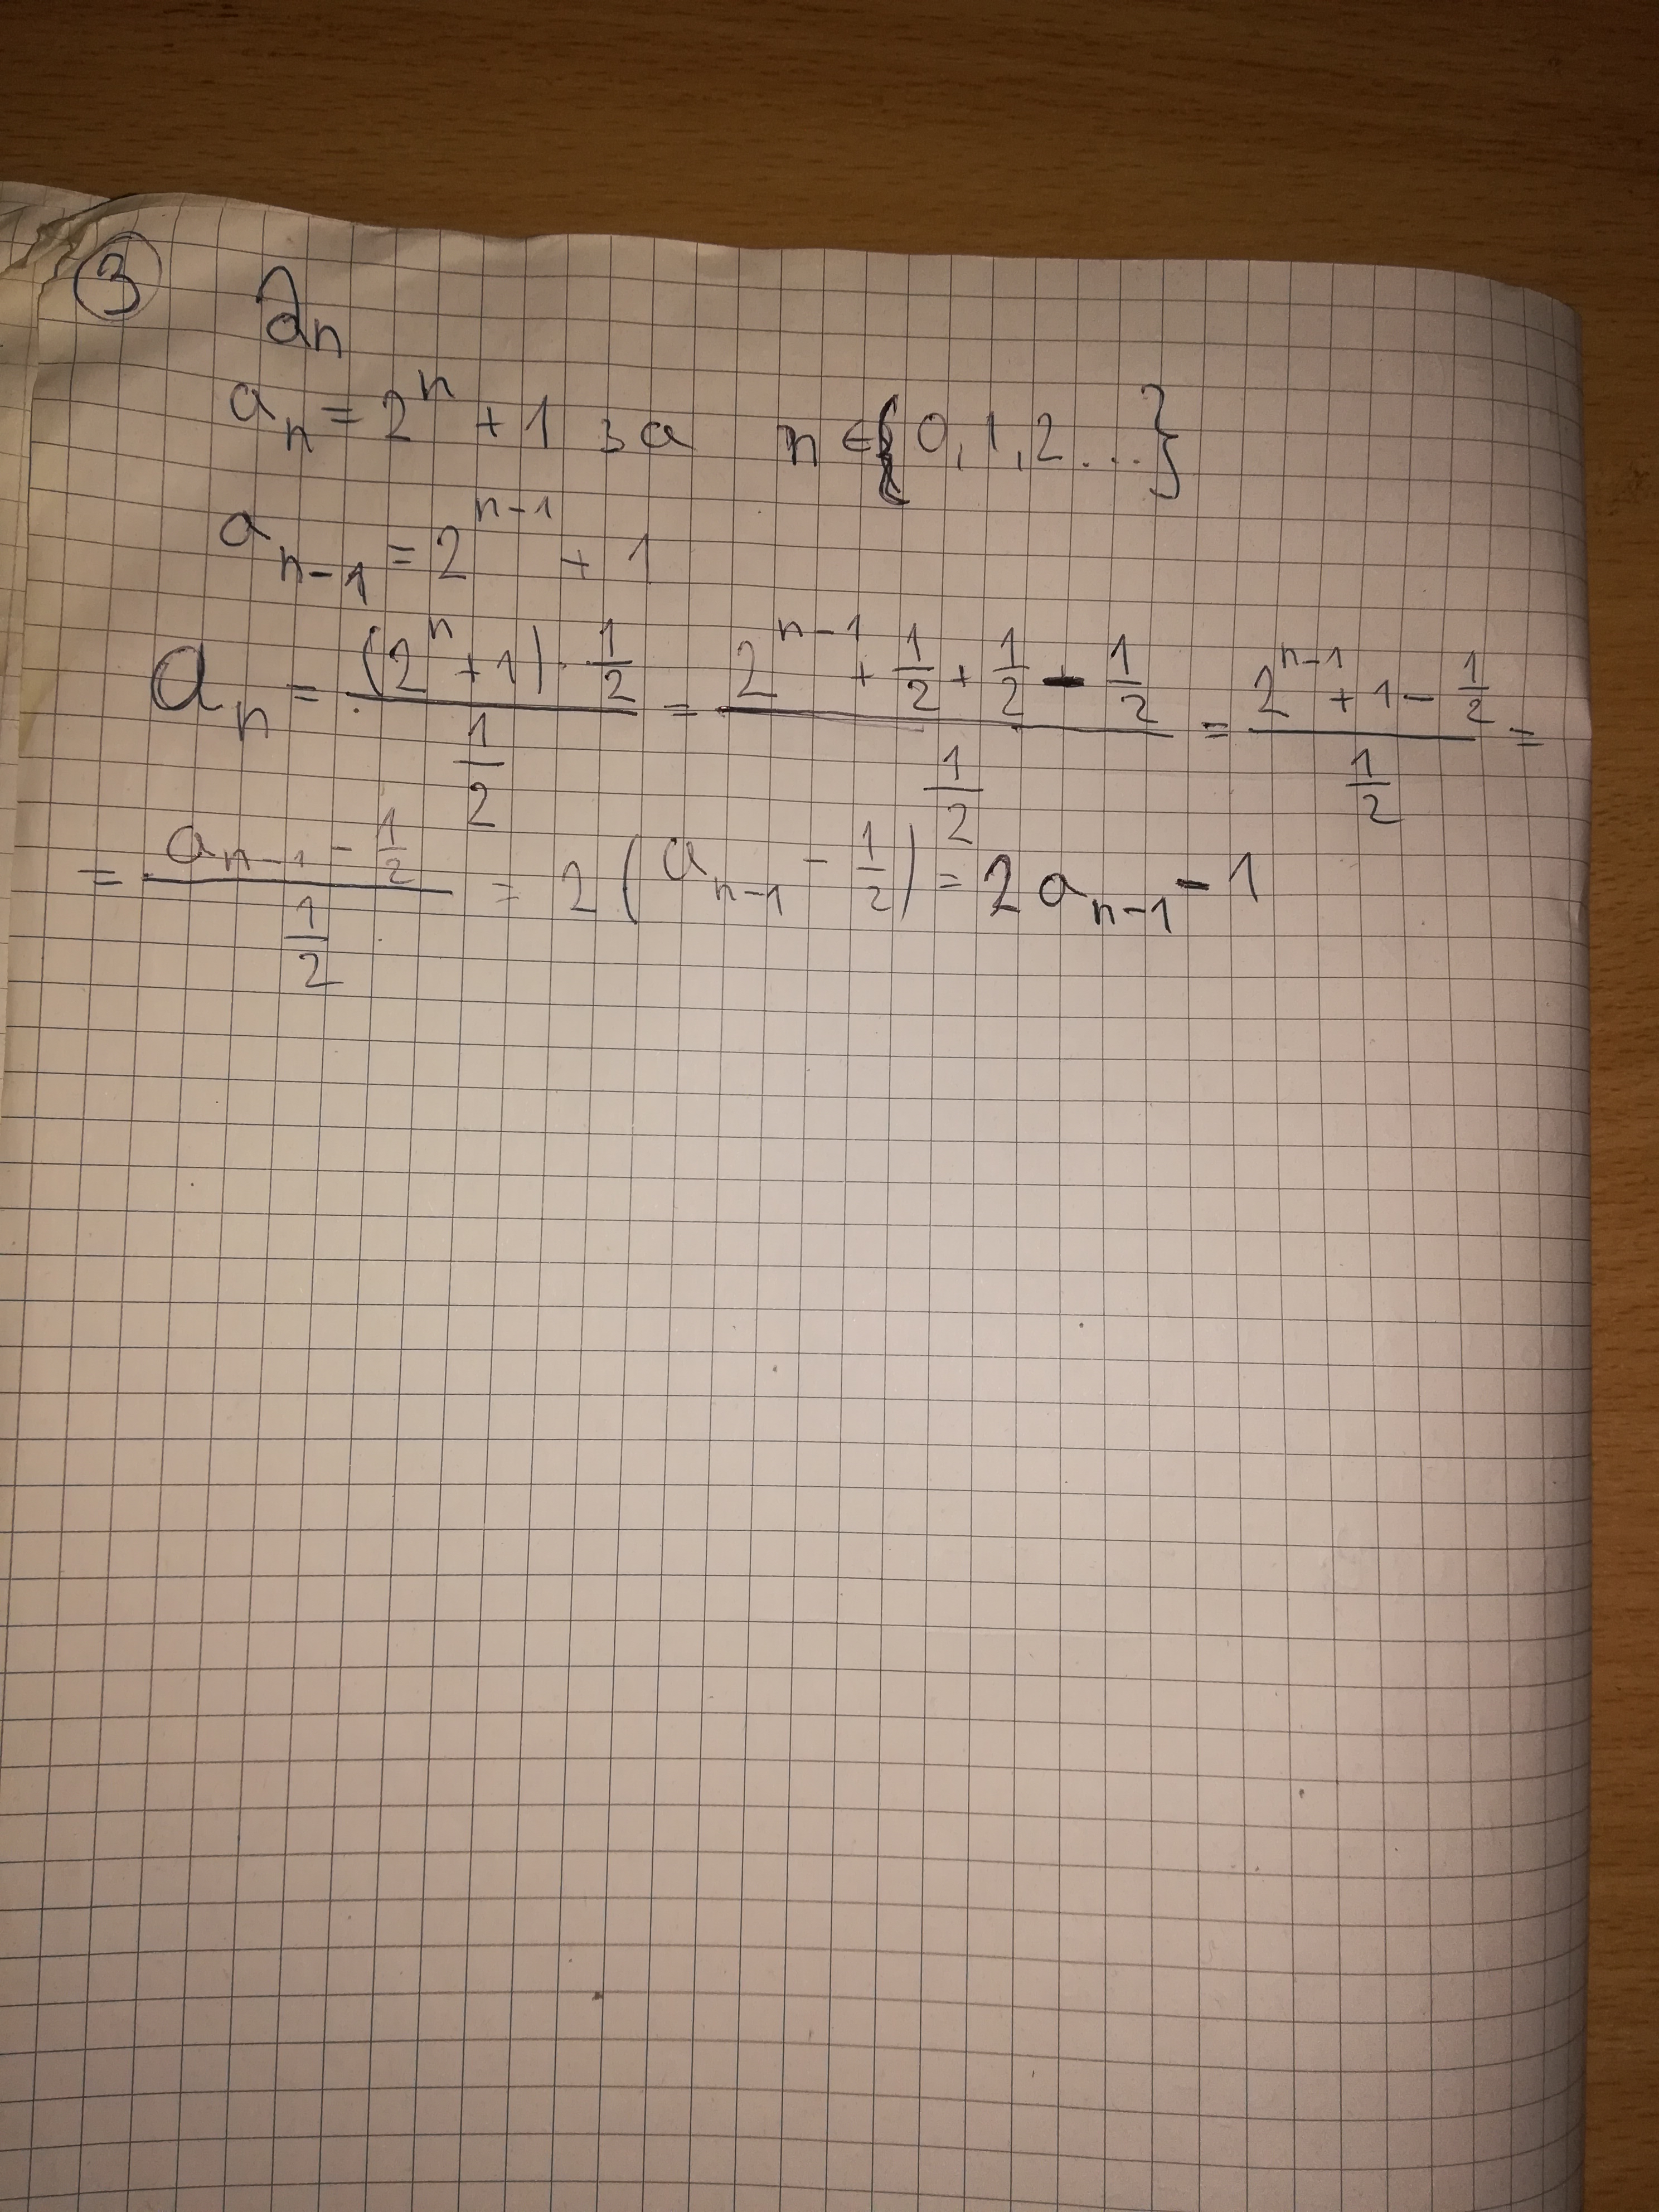 ③ aₙ
aₙ = 2ⁿ + 1 за n ∈ {0, 1, 2 ...}
aₙ₋₁ = 2ⁿ⁻¹ + 1
aₙ = ((2ⁿ + 1) · 1/2) / (1/2) = (2ⁿ⁻¹ + 1/2 + 1/2 - 1/2) / (1/2) = (2ⁿ⁻¹ + 1 - 1/2) / (1/2) =
= (aₙ₋₁ - 1/2) / (1/2) = 2 (aₙ₋₁ - 1/2) = 2aₙ₋₁ - 1